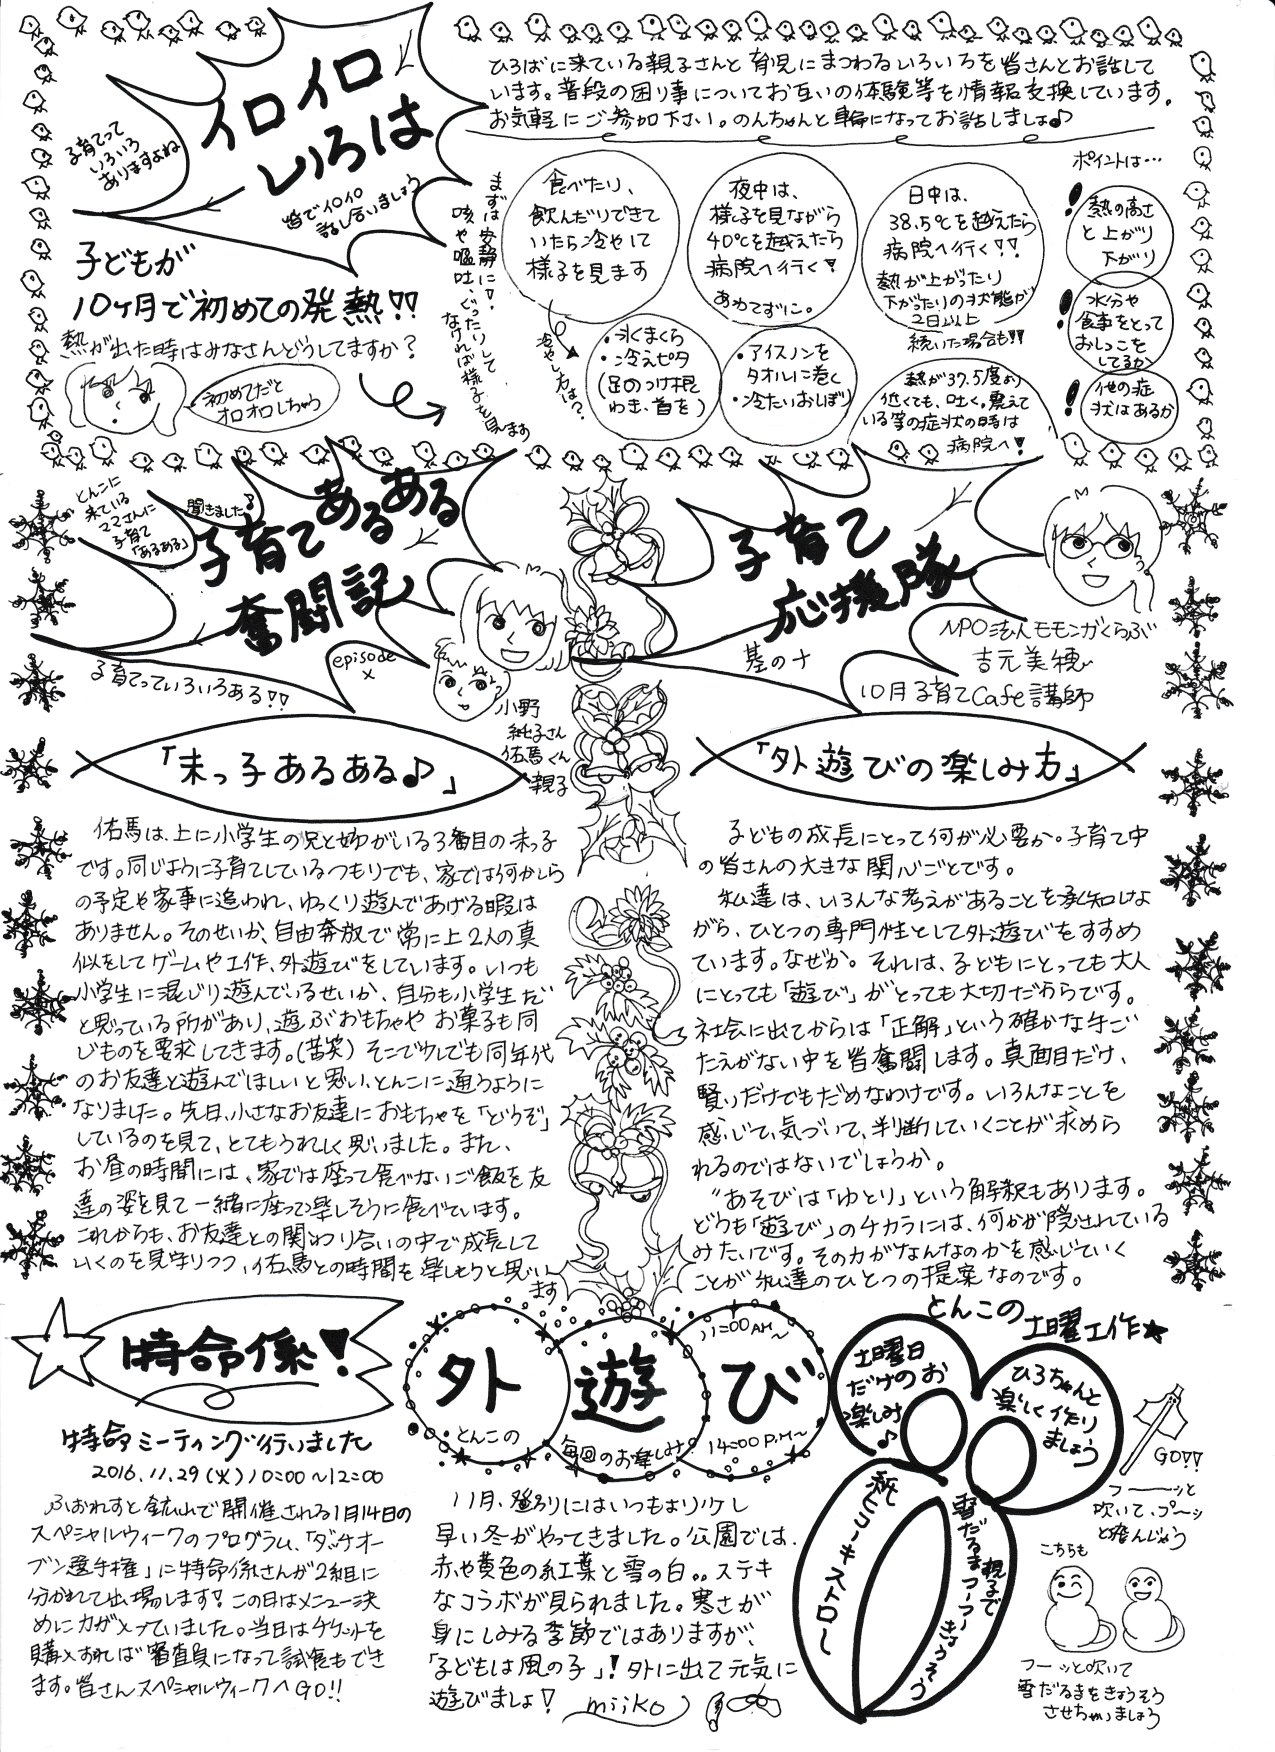 イロイロ
いろは
子育てって
いろいろ
ありますよね
皆でイロイロ
話し合いましょう
ひろばに来ている親子さんと育児にまつわるいろいろを皆さんとお話して
います。普段の困り事についてお互いの体験等を情報交換しています。
お気軽にご参加下さい。のんちゃんと輪になってお話しましょ♪
子どもが
10ヶ月で初めての発熱!!
熱が出た時はみなさんどうしてますか?
初めてだと
オロオロしちゃう
まずは安静に!!
咳や嘔吐、ぐったりして
なければ様子を見ます
食べたり、
飲んだりできて
いたら冷やして
様子を見ます
冷やし方は?
・氷まくら
・冷えピタ
(足のつけ根
わき、首を)
夜中は、
様子を見ながら
40℃を越えたら
病院へ行く!
あわてずに。
・アイスノンを
タオルに巻く
・冷たいおしぼり
日中は、
38.5℃を越えたら
病院へ行く!!
熱が上がったり
下がったりの状態が
2日以上
続いた場合も!!
熱が37.5度より
低くても、吐く。震えて
いる等の症状の時は
病院へ!
ポイントは…
熱の高さ
と上がり
下がり
水分や
食事をとって
おしっこを
してるか
他の症
状はあるか
とんこに
来ている
ママさんに
子育て
「あるある」
聞きました♪
子育てあるある
奮闘記
子育てっていろいろある!!
episode
X
小野
純子さん
佑馬くん
親子
「末っ子あるある♪」
佑馬は、上に小学生の兄と姉がいる3番目の末っ子
です。同じように子育てしているつもりでも、家では何かしら
の予定や家事に追われ、ゆっくり遊んであげる暇は
ありません。そのせいか、自由奔放で常に上2人の真
似をしてゲームや工作、外遊びをしています。いつも
小学生に混じり遊んでいるせいか、自分も小学生だ
と思っている所があり、遊ぶおもちゃやお菓子も同
じものを要求してきます。(苦笑) そこで少しでも同年代
のお友達と遊んでほしいと思い、とんこに通うように
なりました。先日、小さなお友達におもちゃを「どうぞ」
しているのを見て、とてもうれしく思いました。また、
お昼の時間には、家では座って食べないご飯を友
達の姿を見て一緒に座って楽しそうに食べています。
これからも、お友達との関わり合いの中で成長して
いくのを見守りつつ、佑馬との時間を楽しもうと思い
ます
子育て
応援隊
其の十
NPO法人モモンガくらぶ
吉元美穂
10月子育てCafe講師
「外遊びの楽しみ方」
子どもの成長にとって何が必要か。子育て中
の皆さんの大きな関心ごとです。
私達は、いろんな考えがあることを承知しな
がら、ひとつの専門性として外遊びをすすめ
ています。なぜか。それは、子どもにとっても大人
にとっても「遊び」がとっても大切だからです。
社会に出てからは「正解」という確かな手ご
たえがない中を皆奮闘します。真面目だけ、
賢いだけでもだめなわけです。いろんなことを
感じて、気づいて、判断していくことが求めら
れるのではないでしょうか。
〃あそびは「ゆとり」という解釈もあります。
どうも「遊び」のチカラには、何かが隠されている
みたいです。その力がなんなのかを感じていく
ことが私達のひとつの提案なのです。
特命係!
特命ミーティング行いました
2016.11.29(火)10:00~12:00
ふぉれすと鉱山で開催される1月14日の
スペシャルウィークのプログラム、「ダッチオー
ブン選手権」に特命係さんが2組に
分かれて出場します!この日はメニュー決
めに力が入っていました。当日はチケットを
購入すれば審査員になって試食もでき
ます。皆さんスペシャルウィークへGO!!
外遊び
・とんこの
毎回のお楽しみ♪
11:00AM~
14:00P.M~
11月、登別にはいつもより少し
早い冬がやってきました。公園では、
赤や黄色の紅葉と雪の白。。ステキ
なコラボが見られました。寒さが
身にしみる季節ではありますが、
「子どもは風の子」!外に出て元気に
遊びましょ!
miiko
とんこの
土曜工作★
土曜日
だけのお
楽しみ♪
ひろちゃんと
楽しく作り
ましょう
紙ヒコーキストロー
親子で
雪だるまフーフーきょうそう
GO!!
フーーッと
吹いて、プ~ッ
と飛んじゃう
こちらも
フーッと吹いて
雪だるまをきょうそう
させちゃいましょう